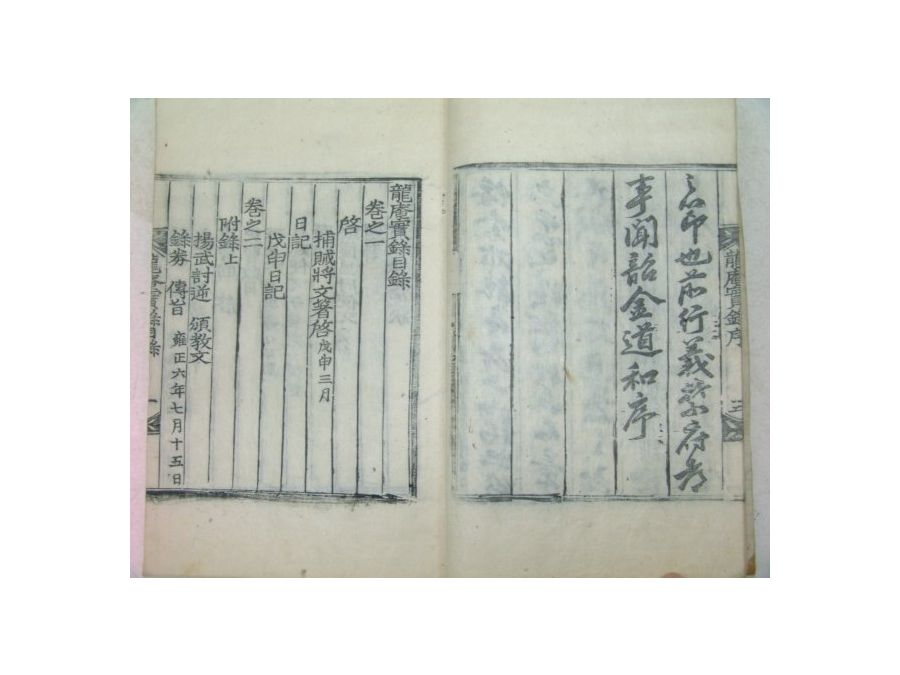 龍庵實錄序
三
也前行義禁府都
事聞韶金道和序
龍庵實錄目錄
卷之一
啓
捕賊將文著啓 戊申三月
日記
戊申日記
卷之二
附錄上
揚武討逆 頒教文
錄券 傳旨 雍正六年七月十五日
龍庵實錄目錄
一